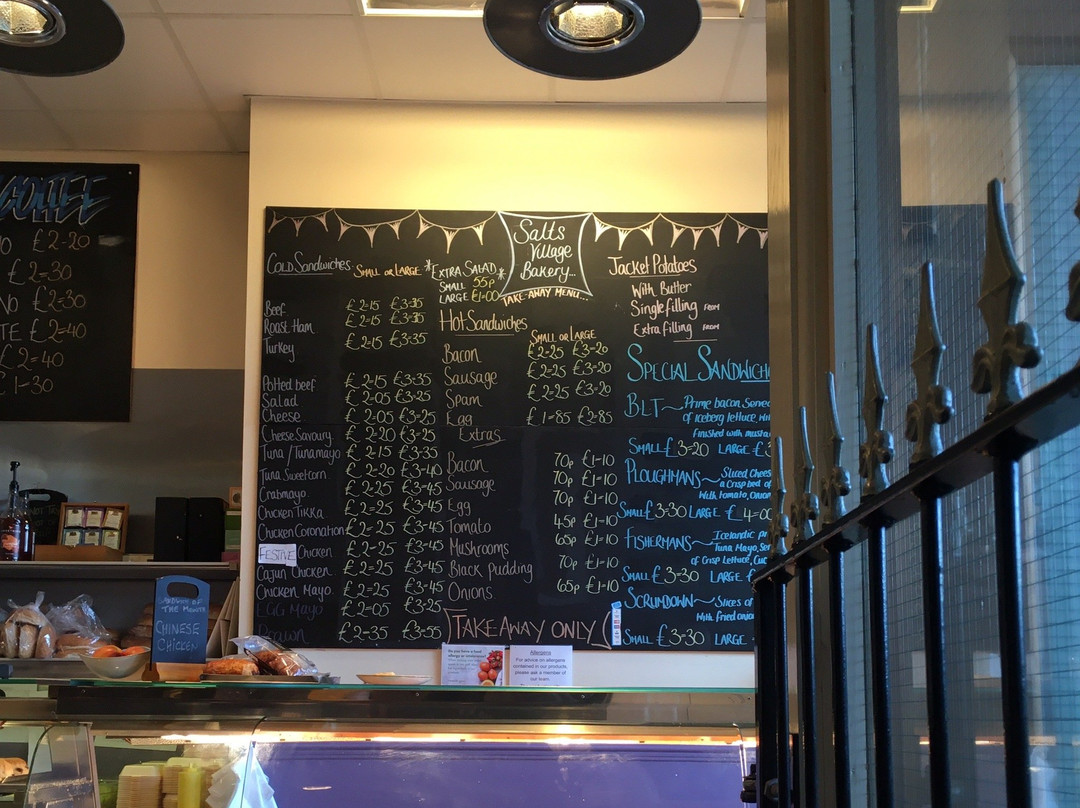 £2-20
£2=30
£2=30
£2=40
£2=40
£1-30
Salts
Village
Bakery...
TAKE-AWAY MENU...
Cold Sandwiches SMALL OR LARGE
*EXTRA SALAD*
SMALL 55p
LARGE £1=00
Beef £2=15 £3=35
Roast Ham £2=15 £3=35
Turkey £2=15 £3=35
Potted beef £2=15 £3=35
Salad £2=05 £3=25
Cheese £2=05 £3=25
Cheese Savoury £2=20 £3=25
Tuna/Tunamayo £2=15 £3=35
Tuna Sweetcorn £2=20 £3=40
Crabmayo £2=25 £3=45
Chicken Tikka £2=25 £3=45
Chicken Coronation £2=25 £3=45
FESTIVE Chicken £2=25 £3=45
Cajun Chicken £2=25 £3=45
Chicken Mayo. £2=25 £3=45
EGG Mayo £2=05 £3=25
Prawn £2=35 £3=55
Hot Sandwiches
SMALL OR LARGE
Bacon £2=25 £3=20
Sausage £2=25 £3=20
Spam £2=25 £3=20
Egg £1=85 £2=85
Extras
Bacon 70p £1-10
Sausage 70p £1-10
Egg 70p £1-10
Tomato 45p £1-10
Mushrooms 65p £1-10
Black pudding 70p £1-10
Onions 65p £1-10
TAKE AWAY ONLY
Jacket Potatoes
With Butter
Single filling FROM
Extra filling FROM
SPECIAL SANDWICH
BLT~ Prime bacon Serve
of iceberg lettuce,
Finished with musta
SMALL £3=20 LARGE £3
PLOUGHMANS~ Sliced Chees
a Crisp bed of
With tomato, Onion
SMALL £3=30 LARGE £4=00
FISHERMANS~ Icelandic pr
Tuna Mayo, Se
of Crisp Lettuce, Cuc
SMALL £3=30 LARGE £
SCRUMDOWN~ Slices of
With fried onio
SMALL £3=30 LARGE
SANDWICH OF THE MONTH
CHINESE
CHICKEN
Allergens
For advice on allergens
contained in our products,
please ask a member of
our team